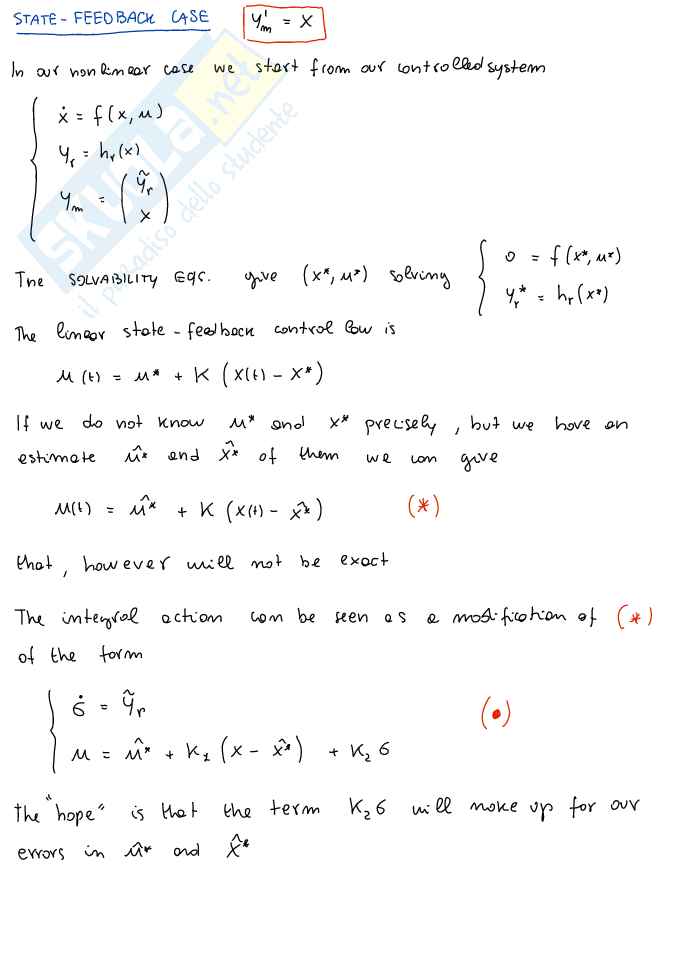 STATE-FEEDBACK CASE y'ₘ = x
In our nonlinear case we start from our controlled system
ẋ = f(x, u)
yᵣ = hᵣ(x)
yₘ = (ỹᵣ
x)
The SOLVABILITY EQS. give (x*, u*) solving { 0 = f(x*, u*)
yᵣ* = hᵣ(x*)
The linear state-feedback control law is
u(t) = u* + K (x(t) - x*)
If we do not know u* and x* precisely, but we have an
estimate û* and x̂* of them we can give
u(t) = û* + K (x(t) - x̂*) (*)
that, however will not be exact
The integral action can be seen as a modification of (*)
of the form
σ̇ = ỹᵣ
(•)
u = û* + K₁ (x - x̂*) + K₂ σ
The "hope" is that the term K₂ σ will make up for our
errors in û* and x̂*
SKUOLA.net
il paradiso dello studente